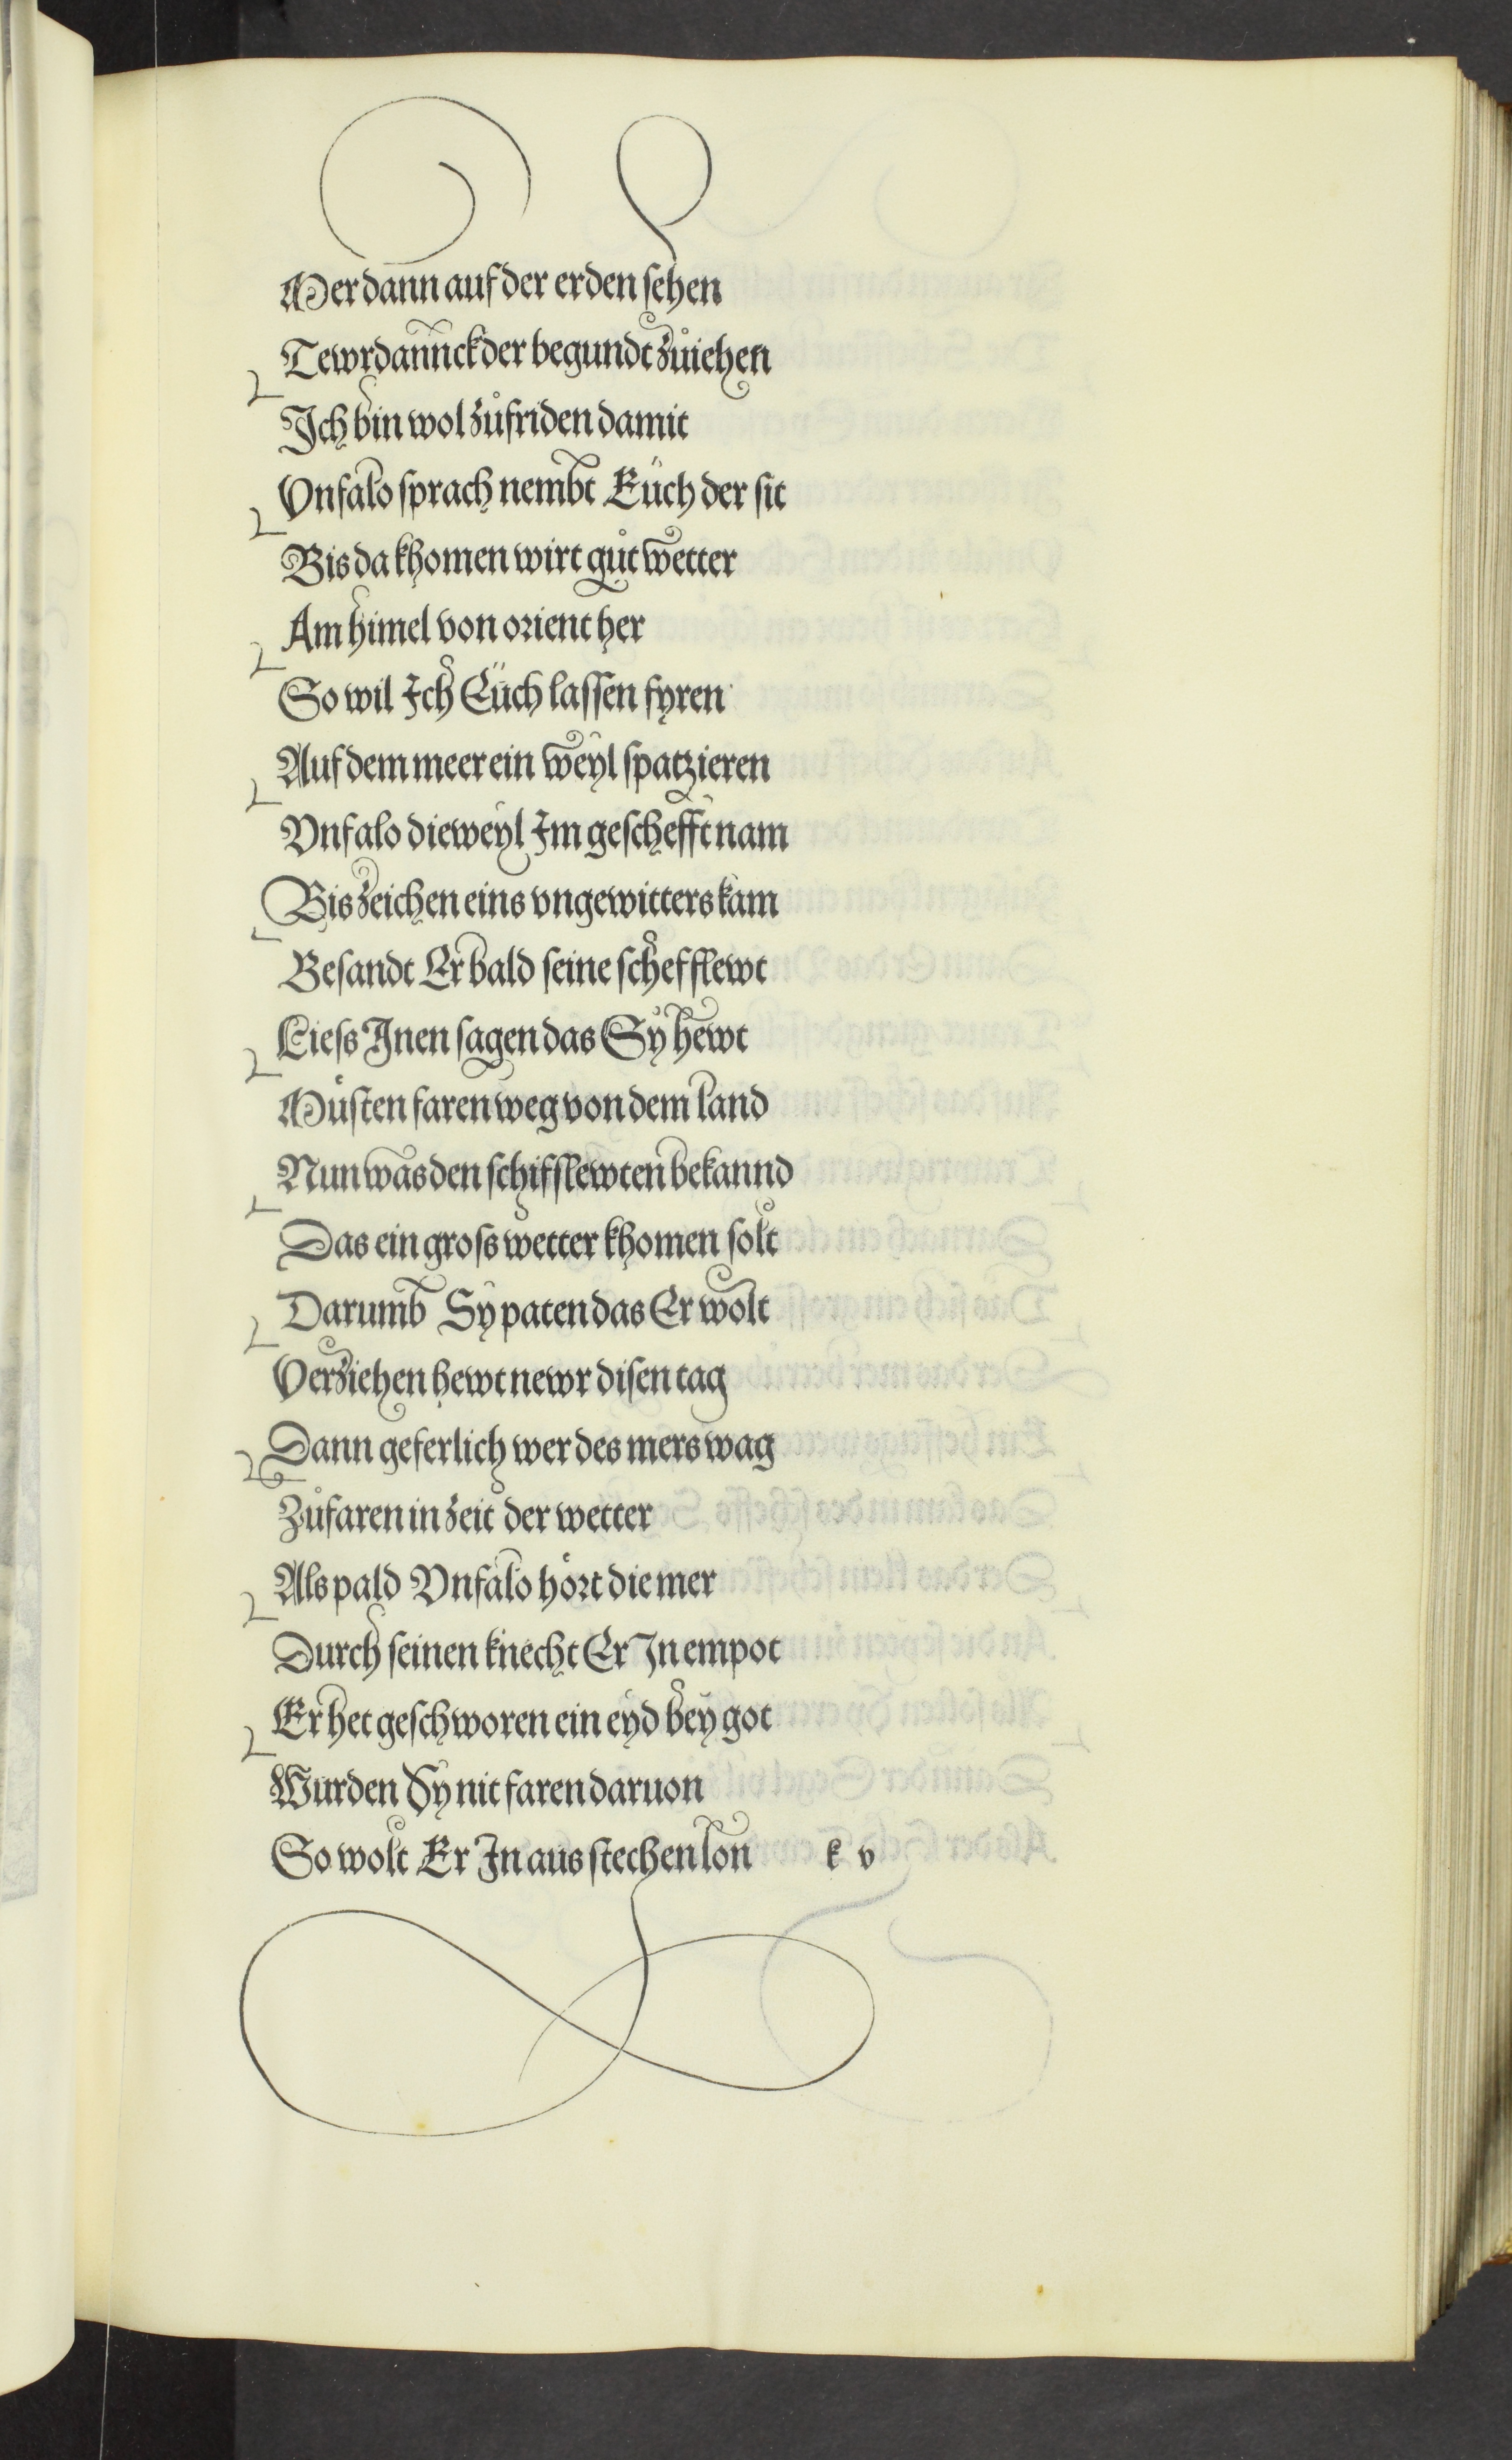 Mer dann auf der erden sehen
Tewrdannck der begundt zůiehen
Ich bin wol zůfriden damit
Vnfalo sprach nembt Eüch der sit
Bis da khomen wirt gůt wetter
Am himel von orient her
So wil Ich Eüch lassen fyren
Auf dem meer ein weyl spatzieren
Vnfalo dieweyl Im geschefft nam
Bis zeichen eins vngewitters kam
Besandt Er bald seine schefflewt
Liess Inen sagen das Sy hewt
Müsten faren weg von dem land
Nun was den schifflewten bekannd
Das ein gross wetter khomen solt
Darumb Sy paten das Er wolt
Verziehen hewt newr disen tag
Dann geferlich wer des mers wag
Zůfaren in zeit der wetter
Als pald Vnfalo hört die mer
Durch seinen knecht Er In empot
Er het geschworen ein eyd bey got
Wurden Sy nit faren daruon
So wolt Er In aus stechen lon k v